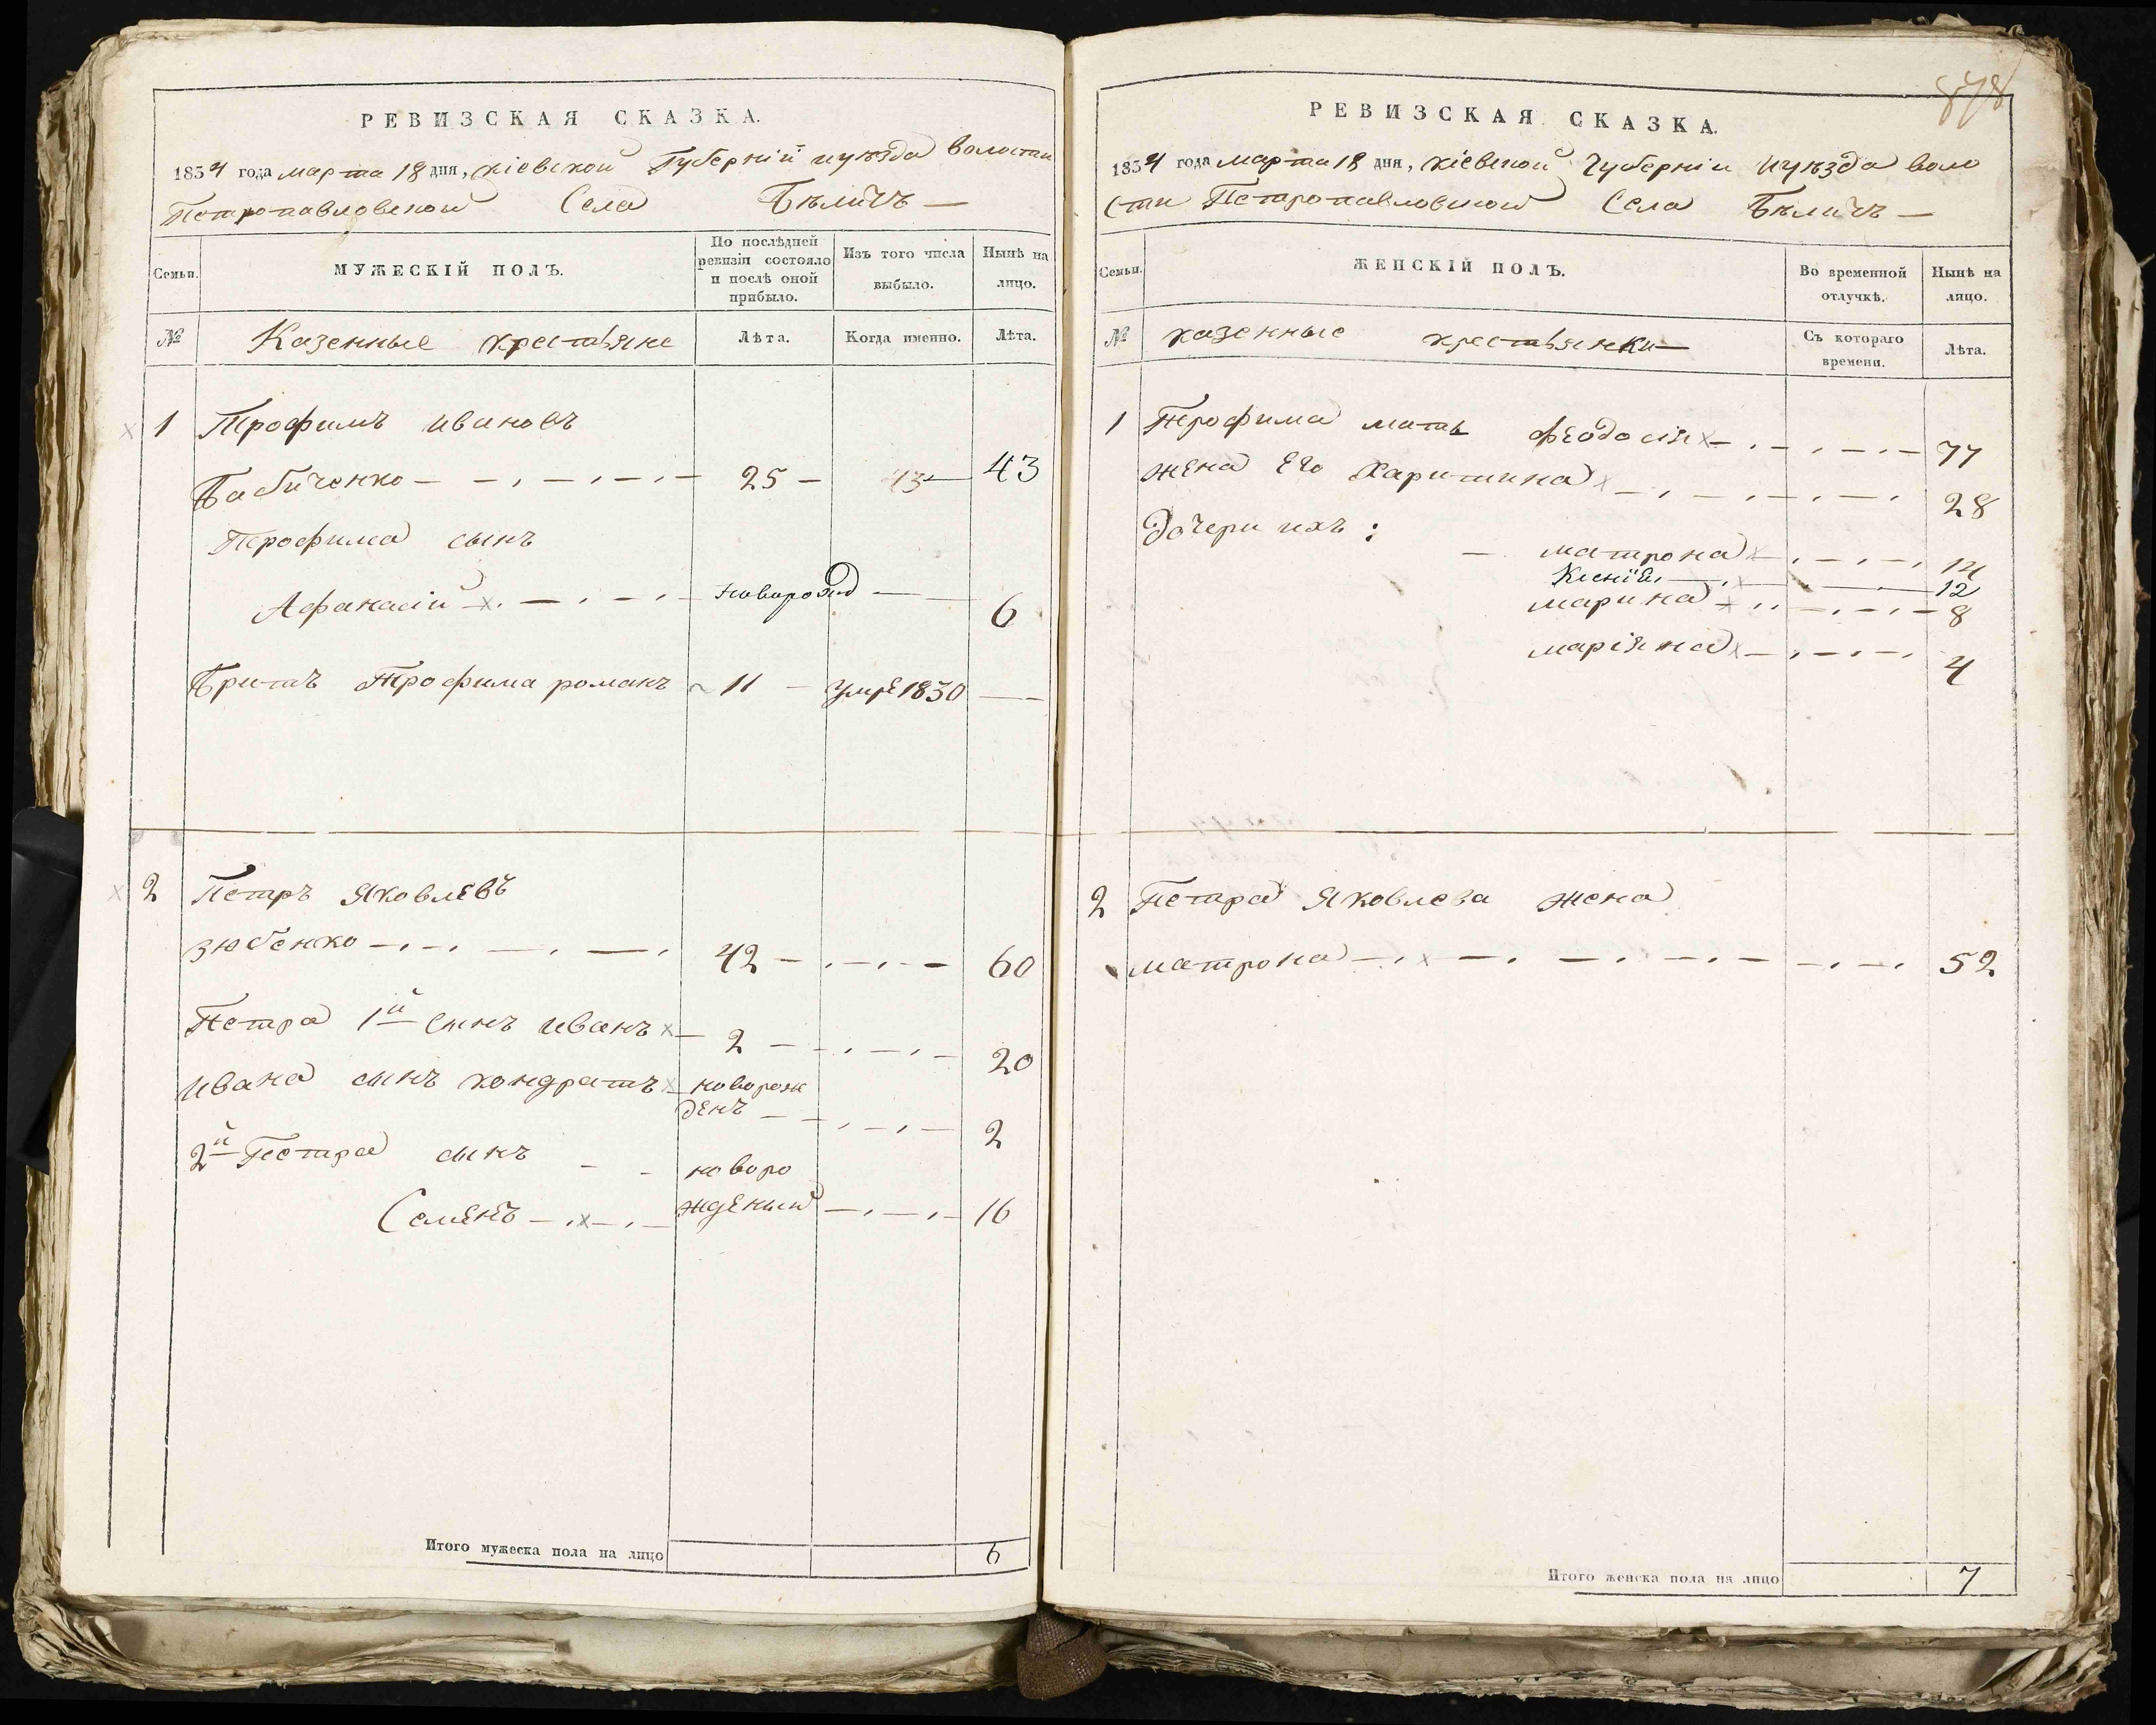 РЕВИЗСКАЯ СКАЗКА.
1834 года марта 18 дня, Кіевской Губерніи иуѣзда волости
Петропавловской Села Бѣличъ —
Семьи.
МУЖЕСКІЙ ПОЛЪ.
По послѣдней ревизіи состояло и послѣ оной прибыло.
Изъ того числа выбыло.
Нынѣ на лицо.
№ Казенные крестьяне Лѣта. Когда именно. Лѣта.
1 Трофимъ Ивановъ
Бабиченко 25 43 43
Трофима сынъ
Афанасій новорожд 6
Братъ Трофима романъ 11 умре 1830 —
2 Петръ Яковлевъ
Зюбенко 42 60
Петра 1й сынъ Иванъ 2 20
Ивана сынъ кондратъ новорож
денъ 2
2й Петра сынъ новоро
Семенъ жденый 16
Итого мужеска пола на лицо 6
878
РЕВИЗСКАЯ СКАЗКА.
1834 года марта 18 дня, Кіевской Губерніи иуѣзда воло
сти Петропавловской Села Бѣличъ —
Семьи.
ЖЕНСКІЙ ПОЛЪ.
Во временной отлучкѣ.
Нынѣ на лицо.
№ казенные крестьянки Съ котораго времени. Лѣта.
1 Трофима мать феодосія 77
жена Его Харитина 28
Дочери ихъ:
матрона 14
Ксенія 12
марина 8
маріяна 4
2 Петра Яковлева жена
матрона 52
Итого женска пола на лицо 7